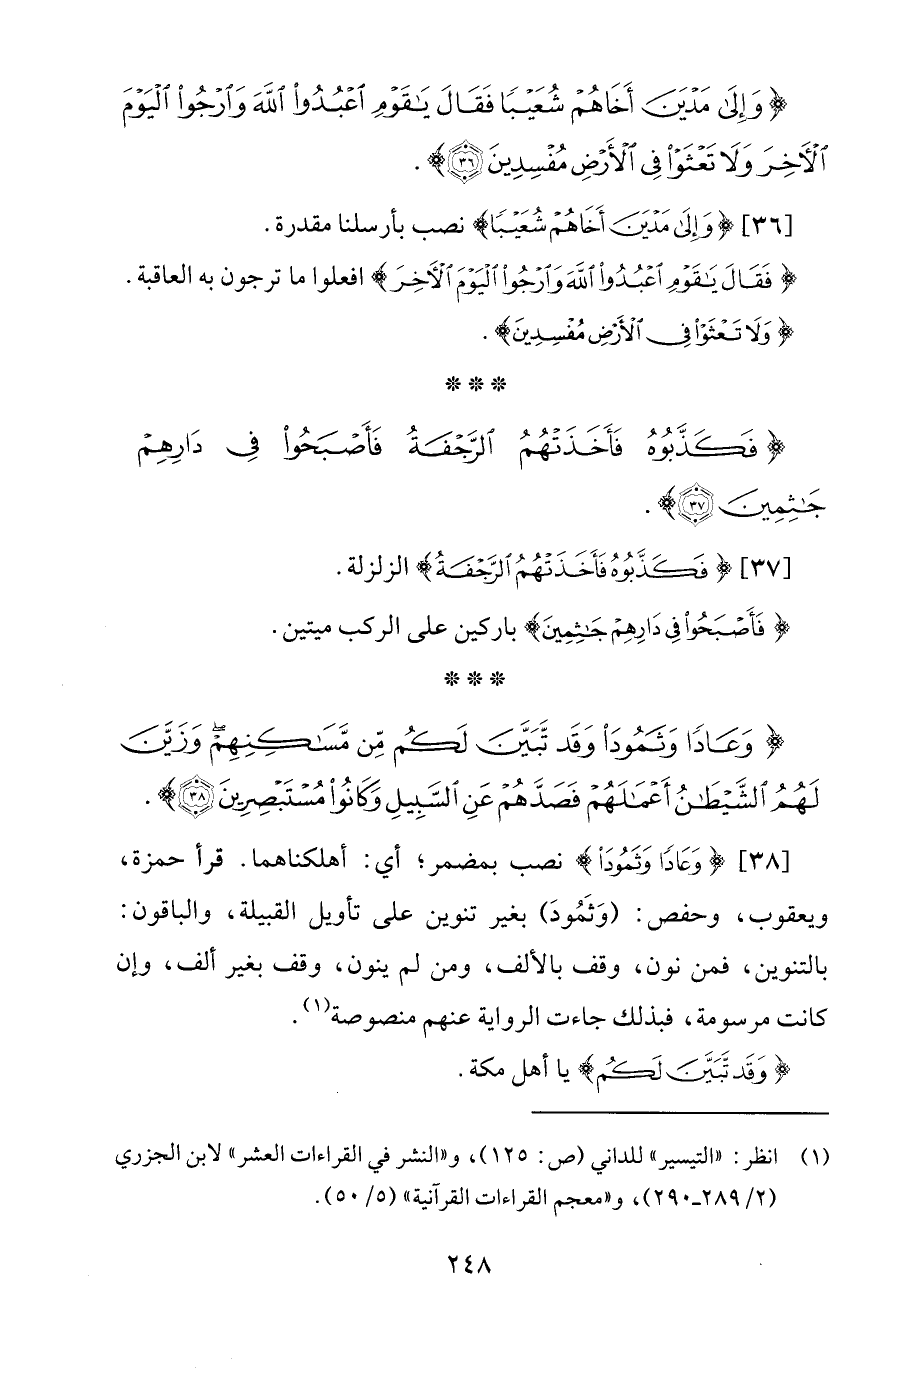 ﴿وَإِلَىٰ مَدۡيَنَ أَخَاهُمۡ شُعَيۡبٗا فَقَالَ يَٰقَوۡمِ ٱعۡبُدُواْ ٱللَّهَ وَٱرۡجُواْ ٱلۡيَوۡمَ
ٱلۡأٓخِرَ وَلَا تَعۡثَوۡاْ فِي ٱلۡأَرۡضِ مُفۡسِدِينَ ٣٦﴾ .
[٣٦] ﴿وَإِلَىٰ مَدۡيَنَ أَخَاهُمۡ شُعَيۡبٗا﴾ نصب بأرسلنا مقدرة .
﴿فَقَالَ يَٰقَوۡمِ ٱعۡبُدُواْ ٱللَّهَ وَٱرۡجُواْ ٱلۡيَوۡمَ ٱلۡأٓخِرَ﴾ افعلوا ما ترجون به العاقبة .
﴿وَلَا تَعۡثَوۡاْ فِي ٱلۡأَرۡضِ مُفۡسِدِينَ﴾ .
* * *
﴿فَكَذَّبُوهُ فَأَخَذَتۡهُمُ ٱلرَّجۡفَةُ فَأَصۡبَحُواْ فِي دَارِهِمۡ
جَٰثِمِينَ ٣٧﴾ .
[٣٧] ﴿فَكَذَّبُوهُ فَأَخَذَتۡهُمُ ٱلرَّجۡفَةُ﴾ الزلزلة .
﴿فَأَصۡبَحُواْ فِي دَارِهِمۡ جَٰثِمِينَ﴾ باركين على الركب ميتين .
* * *
﴿وَعَادٗا وَثَمُودَاْ وَقَد تَّبَيَّنَ لَكُم مِّن مَّسَٰكِنِهِمۡۖ وَزَيَّنَ
لَهُمُ ٱلشَّيۡطَٰنُ أَعۡمَٰلَهُمۡ فَصَدَّهُمۡ عَنِ ٱلسَّبِيلِ وَكَانُواْ مُسۡتَبۡصِرِينَ ٣٨﴾ .
[٣٨] ﴿وَعَادٗا وَثَمُودَاْ﴾ نصب بمضمر؛ أي: أهلكناهما. قرأ حمزة،
ويعقوب، وحفص: (وَثَمُودَ) بغير تنوين على تأويل القبيلة، والباقون:
بالتنوين، فمن نون، وقف بالألف، ومن لم ينون، وقف بغير ألف، وإن
كانت مرسومة، فبذلك جاءت الرواية عنهم منصوصة(١) .
﴿وَقَد تَّبَيَّنَ لَكُم﴾ يا أهل مكة .
(١) انظر: «التيسير» للداني (ص: ١٢٥)، و«النشر في القراءات العشر» لابن الجزري
(٢/ ٢٨٩-٢٩٠)، و«معجم القراءات القرآنية» (٥/ ٥٠).
٢٤٨